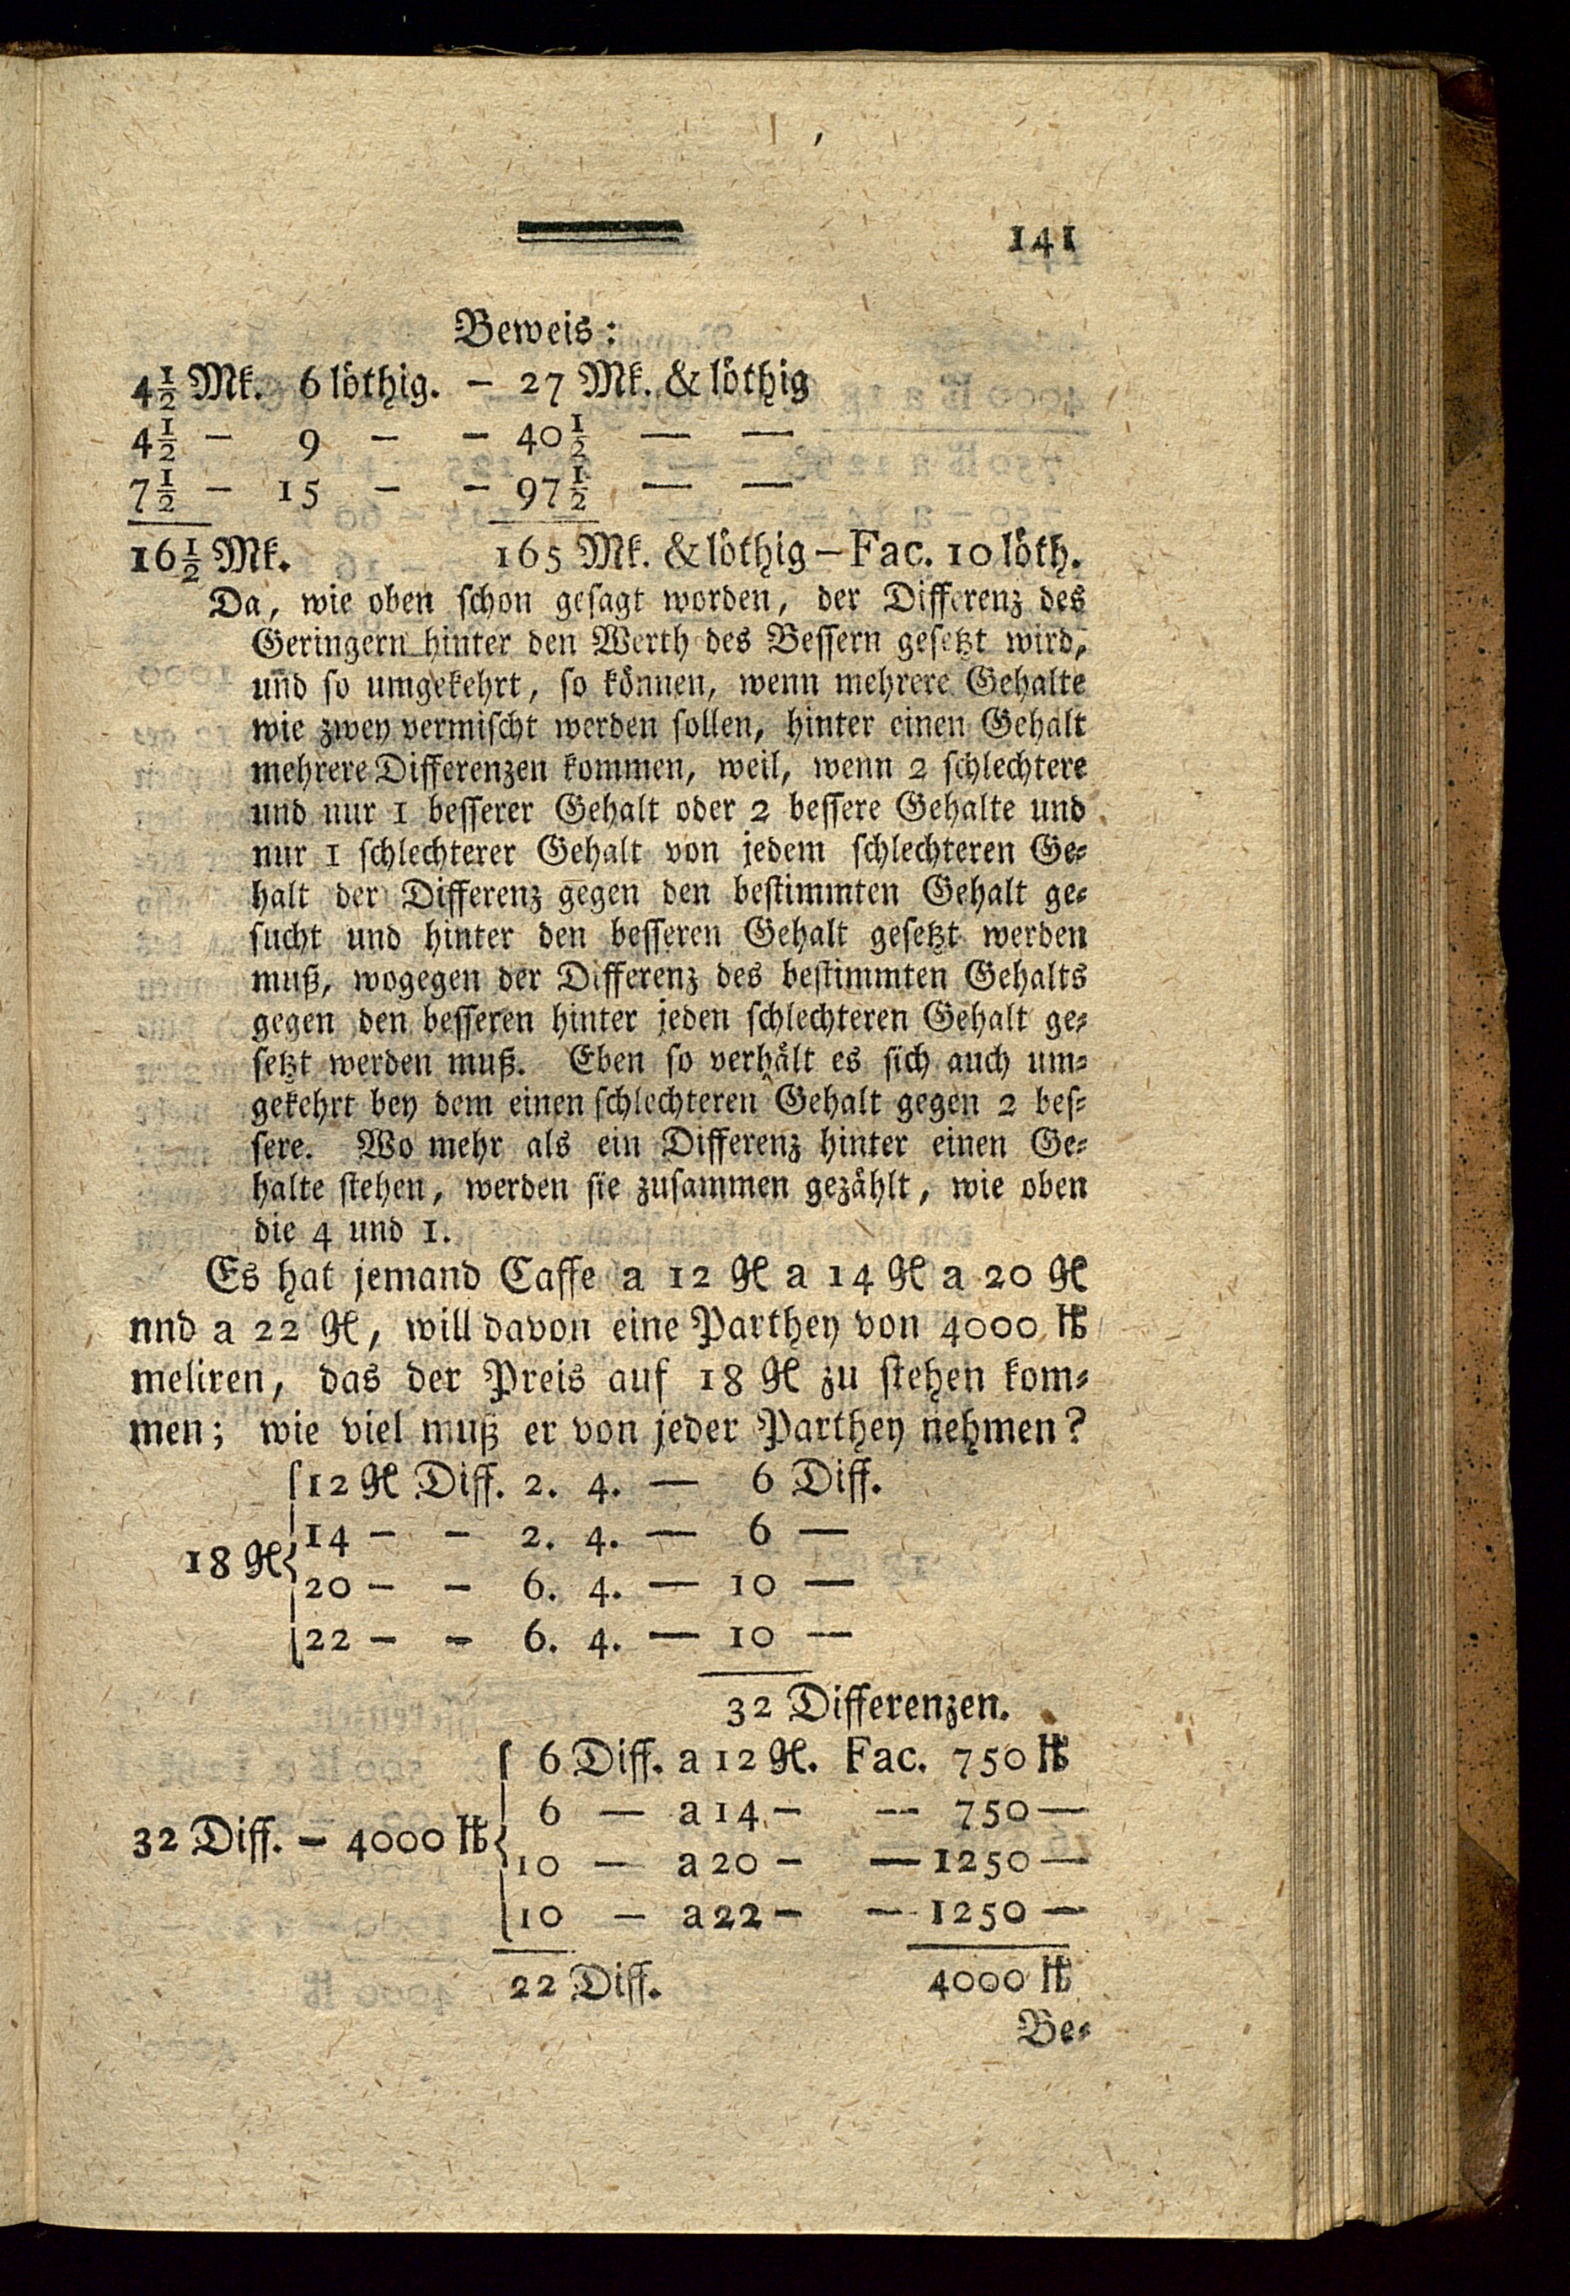 141
Beweis:
4½ Mk. 6 löthig. – 27 Mk. & löthig
4½ – 9 – – 40½ — —
7½ – 15 – – 97½ — —
16½ Mk. 165 Mk. & löthig – Fac. 10 löth.
Da, wie oben schon gesagt worden, der Differenz des
Geringern hinter den Werth des Bessern gesetzt wird,
und so umgekehrt, so können, wenn mehrere Gehalte
wie zwey vermischt werden sollen, hinter einen Gehalt
mehrere Differenzen kommen, weil, wenn 2 schlechtere
und nur 1 besserer Gehalt oder 2 bessere Gehalte und
nur 1 schlechterer Gehalt von jedem schlechteren Ge-
halt der Differenz gegen den bestimmten Gehalt ge-
sucht und hinter den besseren Gehalt gesetzt werden
muß, wogegen der Differenz des bestimmten Gehalts
gegen den besseren hinter jeden schlechteren Gehalt ge-
setzt werden muß. Eben so verhält es sich auch um-
gekehrt bey dem einen schlechteren Gehalt gegen 2 bes-
sere. Wo mehr als ein Differenz hinter einen Ge-
halte stehen, werden sie zusammen gezählt, wie oben
die 4 und 1.
Es hat jemand Caffe a 12 ßl a 14 ßl a 20 ßl
nnd a 22 ßl, will davon eine Parthey von 4000 ℔
meliren, das der Preis auf 18 ßl zu stehen kom-
men; wie viel muß er von jeder Parthey nehmen?
12 ßl Diff. 2. 4. — 6 Diff.
14 – – 2. 4. — 6 —
18 ßl
20 – – 6. 4. — 10 —
22 – – 6. 4. — 10 —
32 Differenzen.
6 Diff. a 12 ßl. Fac. 750 ℔
6 — a 14 – — 750 —
32 Diff. – 4000 ℔
10 — a 20 – — 1250 —
10 – a 22 – – 1250 —
22 Diff. 4000 ℔
Be-